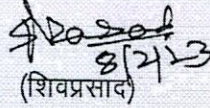 8/2/23
(शिवप्रसाद)